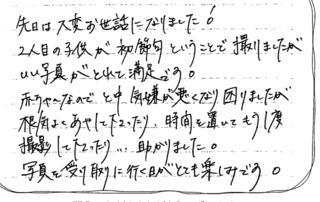 先日は大変お世話になりました！
2人目の子供が初節句ということで撮りましたが
いい写真がとれて満足です。
赤ちゃんなので と中 気嫌が悪くなり 困りましたが
根気よくあやして下さったり、時間を置いてもう1度
撮影して下さったり… 助かりました。
写真を受け取りに行く日がとても楽しみです。